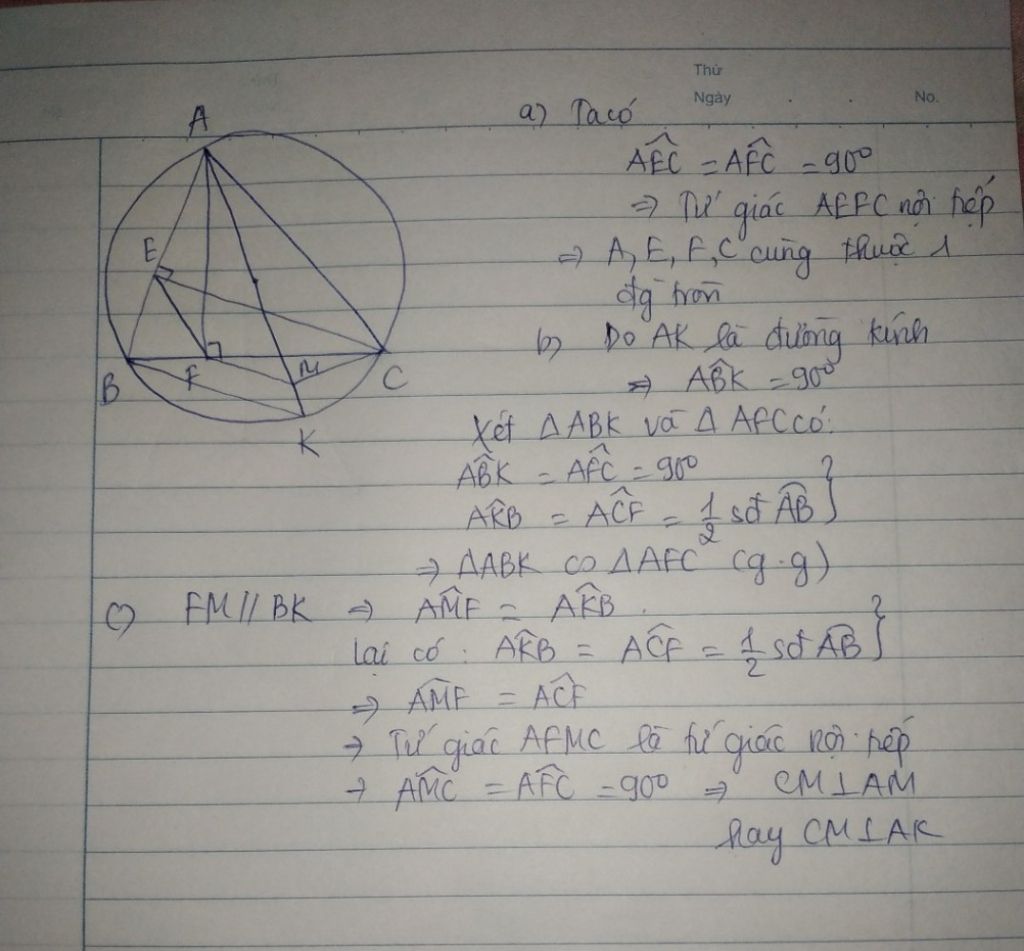 Thứ
Ngày . . No.
a) Ta có
A
AÊC = AF̂C = 90°
⇒ Tứ giác AEFC nội tiếp
E
⇒ A, E, F, C cùng thuộc 1
đg tròn
b) Do AK là đường kính
B F M C
⇒ AB̂K = 90°
K
Xét ΔABK và ΔAFC có:
AB̂K = AF̂C = 90°
AK̂B = AĈF = 1/2 sđ AB }
⇒ ΔABK ∽ ΔAFC (g.g)
c) FM // BK ⇒ AM̂F = AK̂B.
lại có: AK̂B = AĈF = 1/2 sđ AB }
⇒ AM̂F = AĈF
→ Tứ giác AFMC là tứ giác nội tiếp
→ AM̂C = AF̂C = 90° ⇒ CM⊥AM
hay CM⊥AK